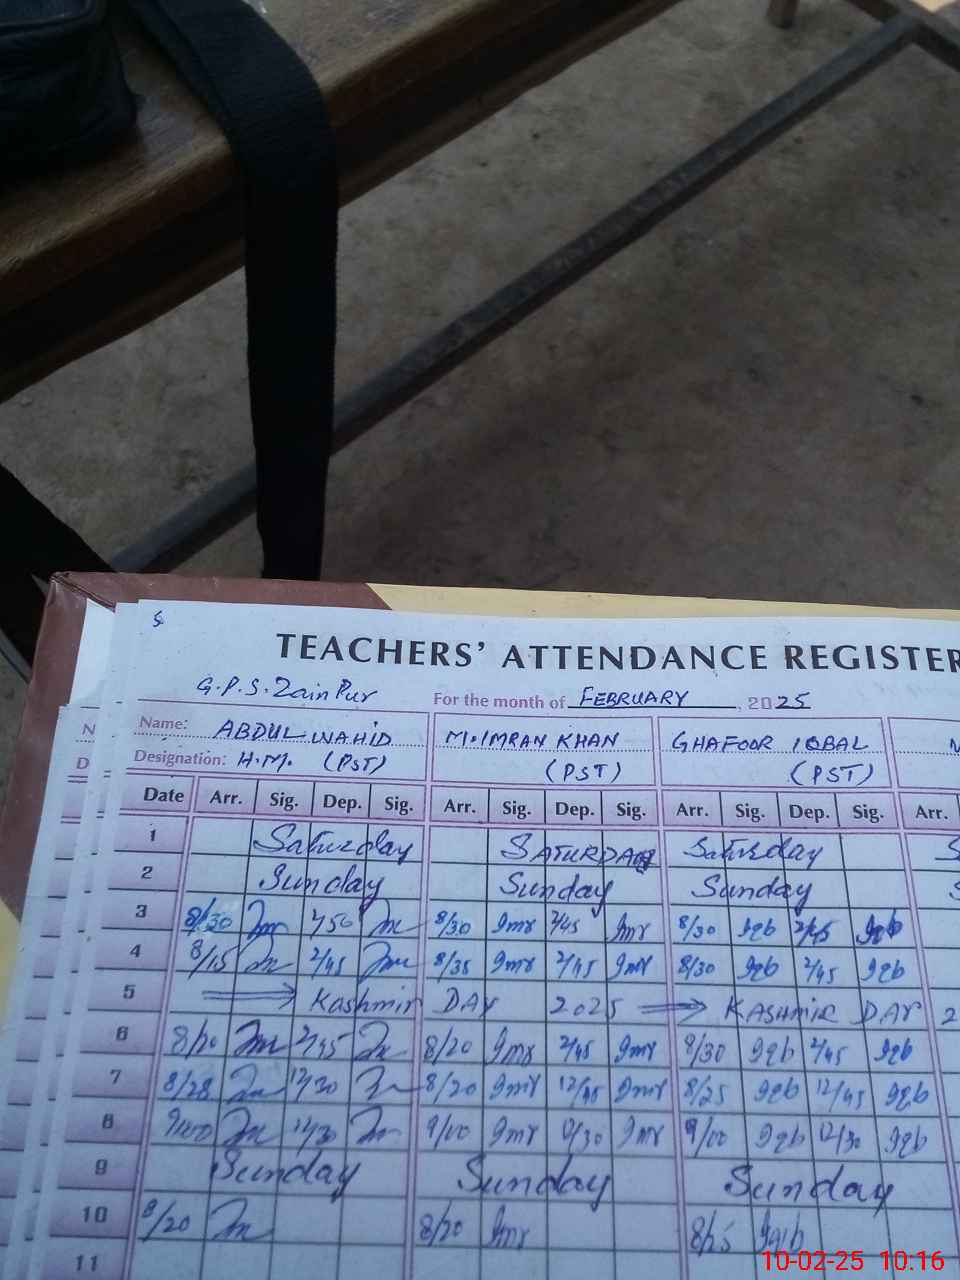 TEACHERS' ATTENDANCE REGISTER
G.P.S. Zain Pur For the month of FEBRUARY, 2025
Name: ABDUL WAHID M. IMRAN KHAN GHAFOOR IQBAL
Designation: H.M. (PST) (PST) (PST)
Date Arr. Sig. Dep. Sig. Arr. Sig. Dep. Sig. Arr. Sig. Dep. Sig. Arr.
1 Saturday SATURDAY Saturday
2 Sunday Sunday Sunday
3 8/30 2/50 8/30 Imr 2/45 Imr 8/30 Iqb 2/45 Iqb
4 8/15 2/45 8/35 Imr 2/45 Imr 8/30 Iqb 2/45 Iqb
5 Kashmir DAY 2025 KASHMIR DAY 2
6 8/20 2/45 8/20 Imr 2/45 Imr 8/30 Iqb 2/45 Iqb
7 8/28 12/30 8/20 Imr 12/45 Imr 8/25 Iqb 12/45 Iqb
8 9/00 12/30 9/00 Imr 12/30 Imr 9/00 Iqb 12/30 Iqb
9 Sunday Sunday Sunday
10 8/20 8/20 Imr 8/25 Iqb
11
10-02-25 10:16